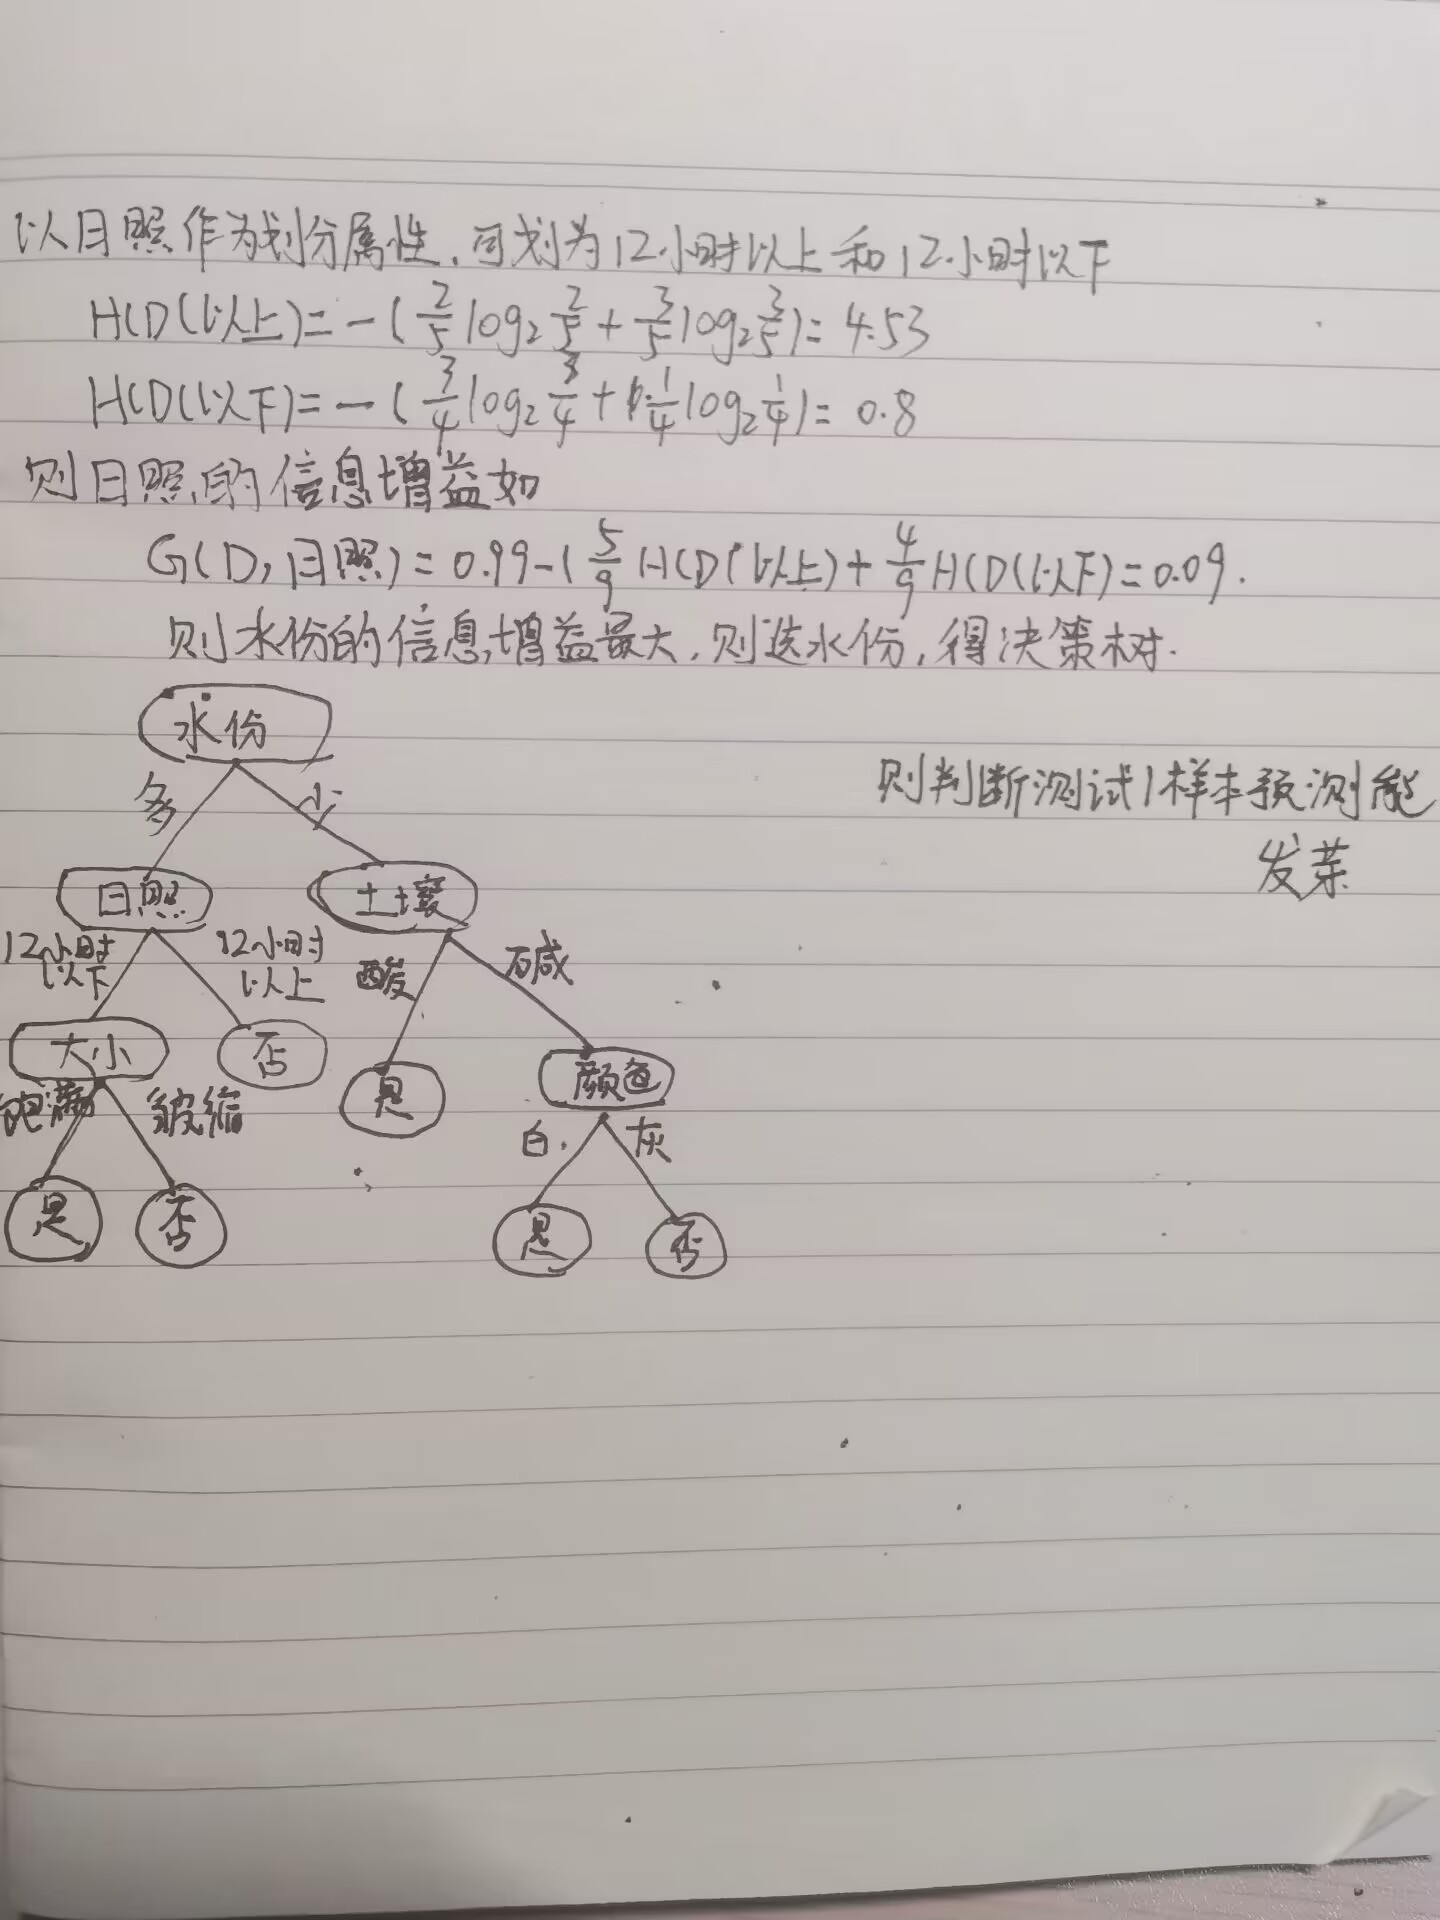 以日照作为划分属性,可划为12小时以上和12小时以下
H(D(以上)=-(2/5 log₂ 2/5 + 3/5 log₂ 3/5)=4.53
H(D(以下)=-(3/4 log₂ 3/4 + 1/4 log₂ 1/4)=0.8
则日照的信息增益如
G(D,日照)=0.99-(5/9 H(D(以上)+4/9 H(D(以下)=0.09.
则水份的信息增益最大,则选水份,得决策树.
水份
则判断测试1样本预测能
发芽
多 少
日照 土壤
12小时以下 12小时以上 酸 碱
大小 否 是 颜色
饱满 皱缩 白 灰
是 否 是 否